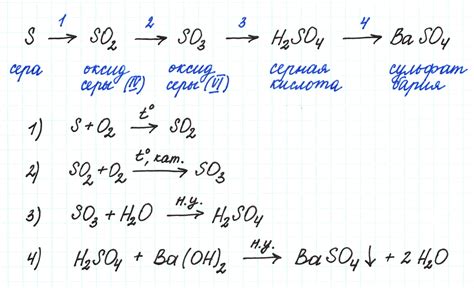 1 2 3 4
S → SO₂ → SO₃ → H₂SO₄ → BaSO₄
сера оксид серы (IV) оксид серы (VI) серная кислота сульфат бария
1) S + O₂ →t° SO₂
2) SO₂ + O₂ →t°, кат. SO₃
3) SO₃ + H₂O →н.у. H₂SO₄
4) H₂SO₄ + Ba(OH)₂ →н.у. BaSO₄↓ + 2H₂O